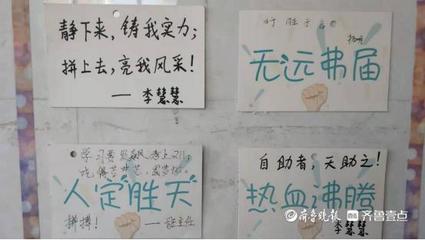 静下来，铸我实力；
拼上去，亮我风采！
——李慧慧
行胜于言
无远弗届
学习
人定胜天
拼搏！
——班主任
自助者，天助之！
热血沸腾
李慧慧
齐鲁晚报·齐鲁壹点